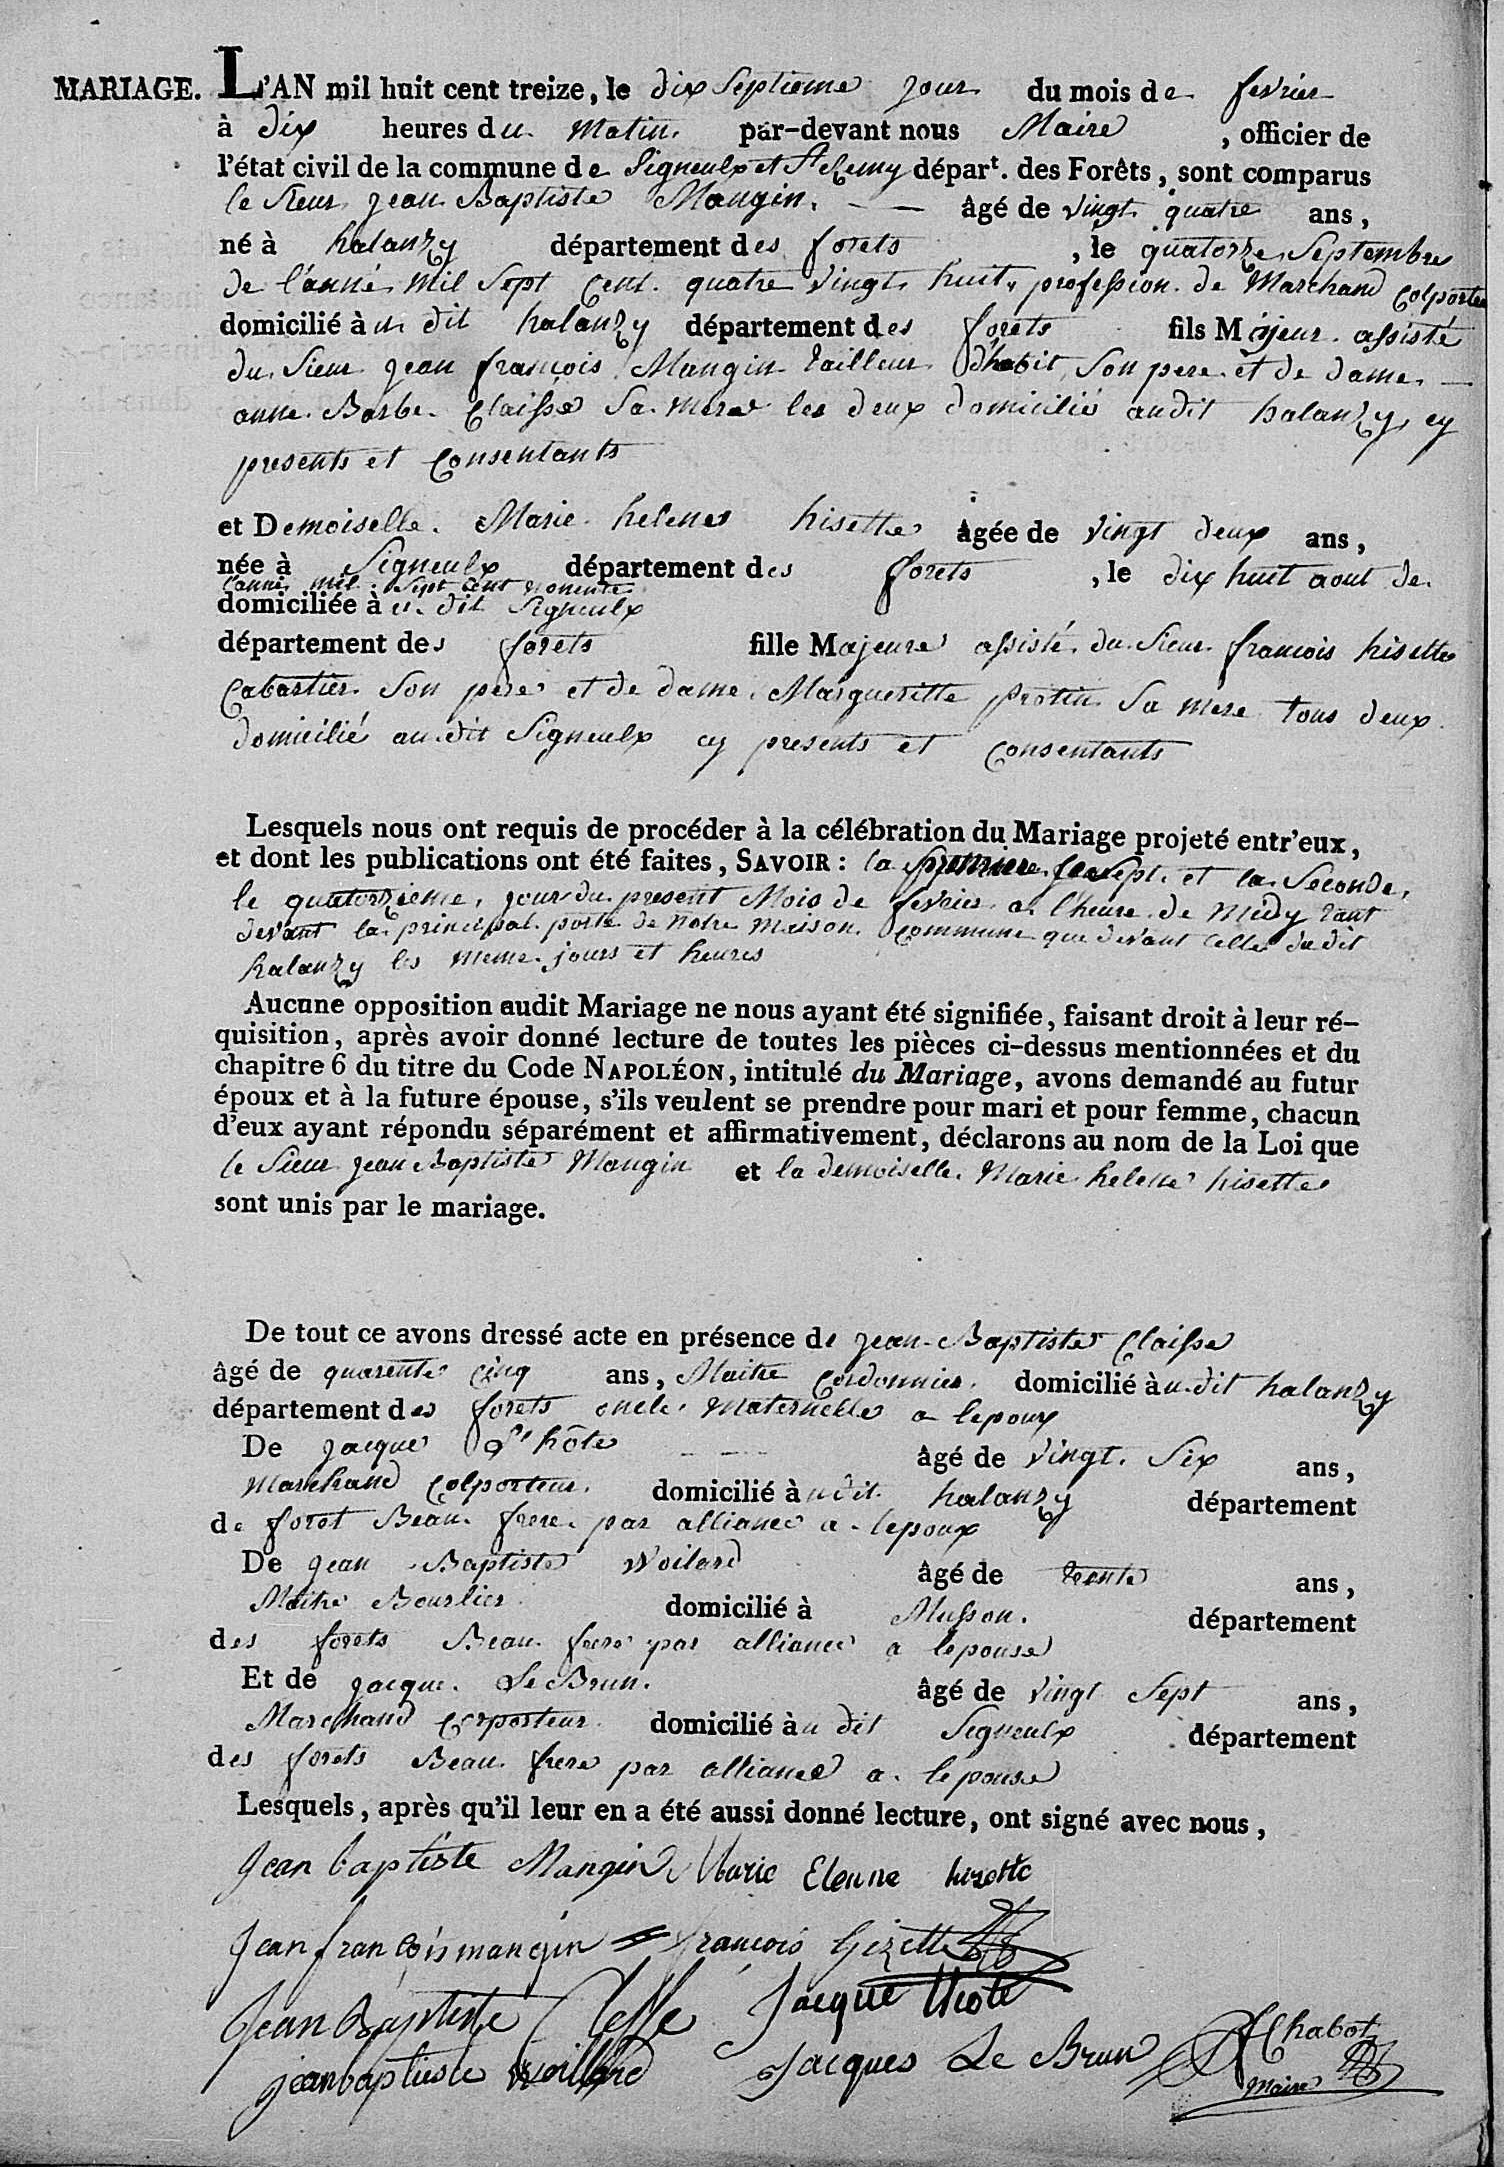 MARIAGE. L'AN mil huit cent treize, le dix Septieme jour du mois de fevrier
à dix heures du matin par-devant nous Maire, officier de
l'état civil de la commune de Signeulx et St Remy départ. des Forêts, sont comparus
le Sieur jean Baptiste Mangin. — — âgé de vingt quatre ans,
né à halanzy département des forets, le quatorze Septembre
de l'anné mil Sept Cent quatre vingt huit, profession de Marchand Colporteur
domicilié àu dit halanzy département des forets fils Majeur assisté
du Sieur jean francois Mangin tailleur d'habit Son pere et de dame —
anne Barbe Claisse Sa mere les deux domicilié audit halanzy, cy
presents et Consentants
et Demoiselle Marie helene hisette âgée de vingt deux ans,
née à Signeulx département des forets, le dix huit aout de
l'anné mil Sept Cent nonente
domiciliée àu dit Signeulx
département des forets fille Majeure assisté du Sieur francois hisette
Cabartier Son pere et de dame Marguerite Protin Sa mere tous deux
domicilié audit Signeulx cy presents et Consentants
Lesquels nous ont requis de procéder à la célébration du Mariage projeté entr'eux,
et dont les publications ont été faites, SAVOIR : la premiere le Sept et la Seconde
le quatorzieme jour du present Mois de fevrier a l'heure de Midy tant
devant la principal porte de Notre Maison Commune que devant Celle du dit
halanzy les meme jours et heures
Aucune opposition audit Mariage ne nous ayant été signifiée, faisant droit à leur ré-
quisition, après avoir donné lecture de toutes les pièces ci-dessus mentionnées et du
chapitre 6 du titre du Code NAPOLÉON, intitulé du Mariage, avons demandé au futur
époux et à la future épouse, s'ils veulent se prendre pour mari et pour femme, chacun
d'eux ayant répondu séparément et affirmativement, déclarons au nom de la Loi que
le Sieur jean Baptiste Mangin et la demoiselle Marie helene hisette
sont unis par le mariage.
De tout ce avons dressé acte en présence de jean Baptiste Claisse
âgé de quarente Cinq ans, Maitre Cordonnier domicilié àu dit halanzy
département des forets oncle Maternelle a lepoux
De jacque L'hôte — — âgé de vingt Six ans,
Marchand Colporteur domicilié àu dit halanzy département
de foret Beau frere par alliance a lepoux
De jean Baptiste Woilard âgé de trente ans,
Maitre Bourlier domicilié à Musson. département
des forets Beau frere par alliance a lepouse
Et de jacque Le Brun. âgé de vingt Sept ans,
Marchand Corporteur domicilié àu dit Signeulx département
des forets Beau frere par alliance a lepouse
Lesquels, après qu'il leur en a été aussi donné lecture, ont signé avec nous,
Jean baptiste Mangin Marie Elenne hizette
Jean francois mangin francois hizette
Jean Baptiste Clesse Jacque Lhote
jean baptiste woillard Jacques Le Brun Chabot
Maire